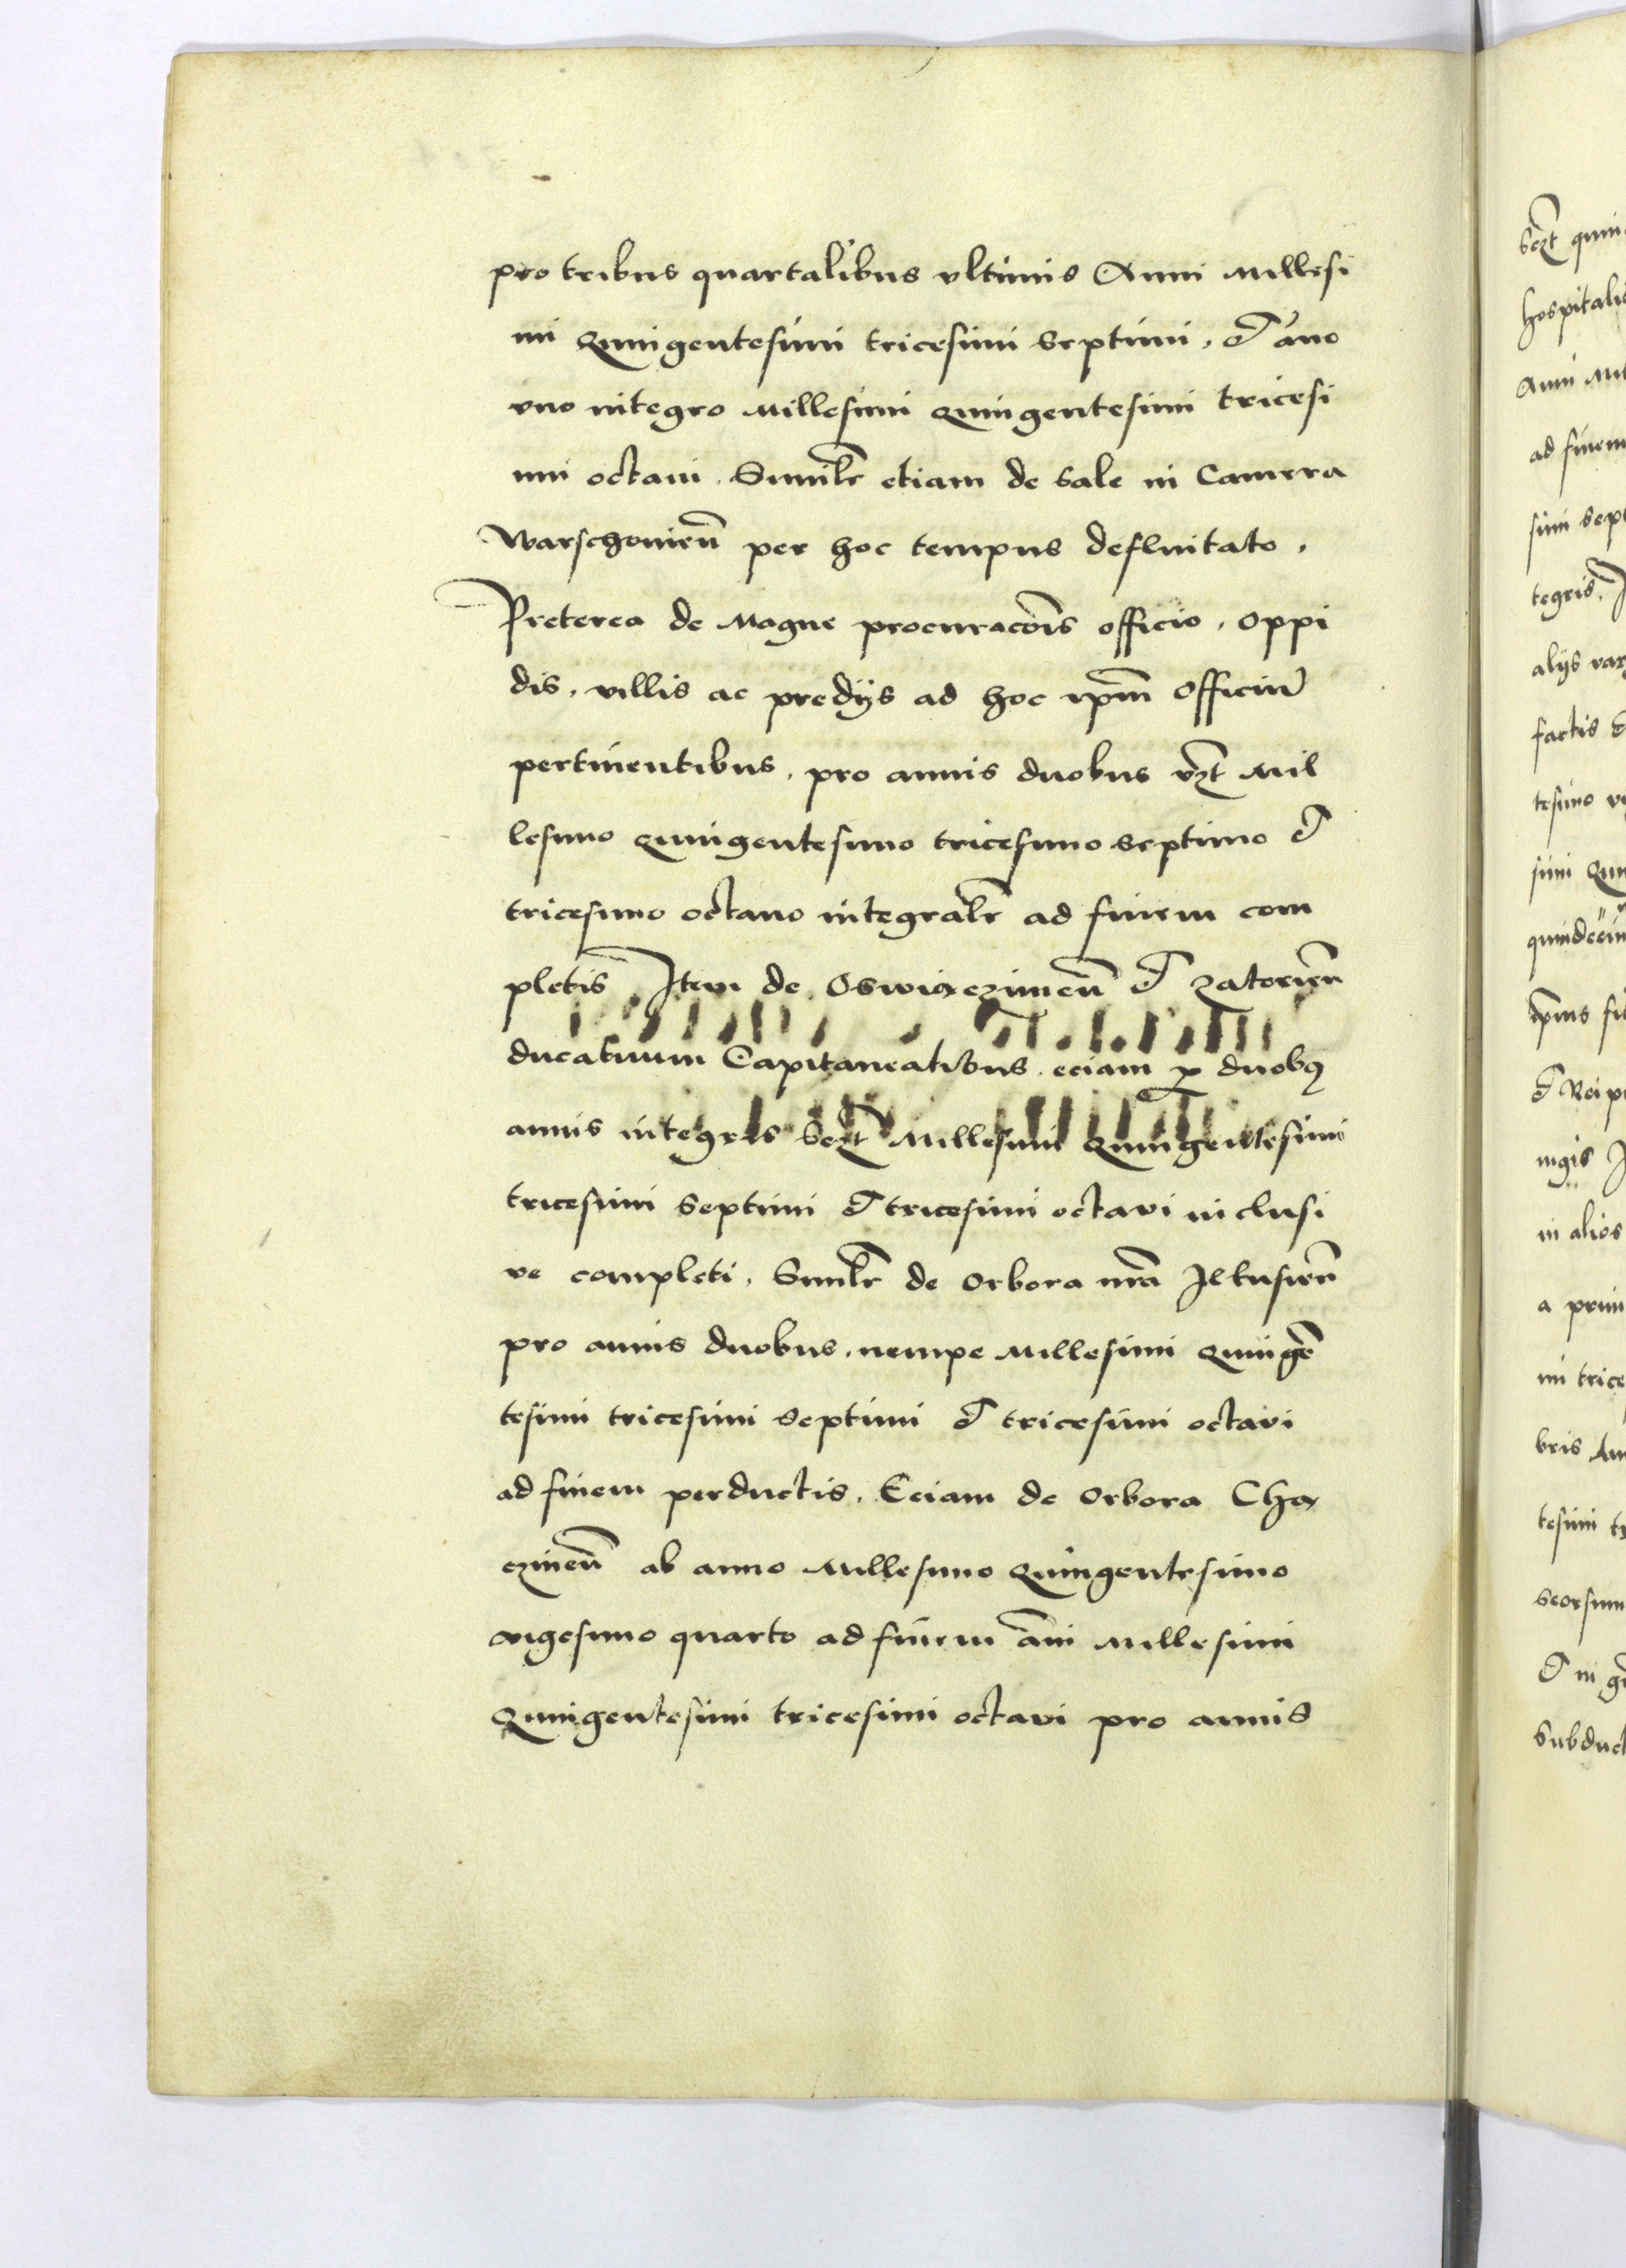 pro tribus quartalibus ultimis Anni Millesi
mi Quingentesimi tricesimi septimi, et ãno
vno integro Millesimi Quingentesimi tricesi
mi octaui. Simil̃r etiam de sale in Camera
Warschouien̄ per hoc tempus defluitato,
Preterea de Magne procuracõis officio, oppi
dis, villis ac predijs ad hoc ip̃m officiũ
pertinentibus, pro annis duobus vz̃t Mil
lesimo Quingentesimo tricesimo septimo et
tricesimo octauo integral̃r ad finem com
pletis Item de Oswiaczimen̄ et Zatorien̄
ducatuum Capitaneatibus. eciam p duobꝯ
annis integris scz̃t Millesimi Quingentesimi
tricesimi septimi et tricesimi octavi inclusi
ve completi, Simil̃r de Orbora nr̃a Ilkusien̄
pro annis duobus, nempe Millesimi Quingẽ
tesimi tricesimi septimi et tricesimi octavi
ad finem perductis, Eciam de Orbora Cha
czinen̄ ab anno Millesimo Quingentesimo
vigesimo quarto ad finem ãni Millesimi
Quingentesimi tricesimi octavi pro annis
scz̃t quin
hospitalis
Anni Mil
ad finem
simi sept
tegris, I
alijs var
factis et
tesimo vi
simi Quin
quindecim
ip̃ius
et Rei p
ingis I
in alios
a prim
mi trice
bris An
tesimi tr
seorsum
et in g
subduct